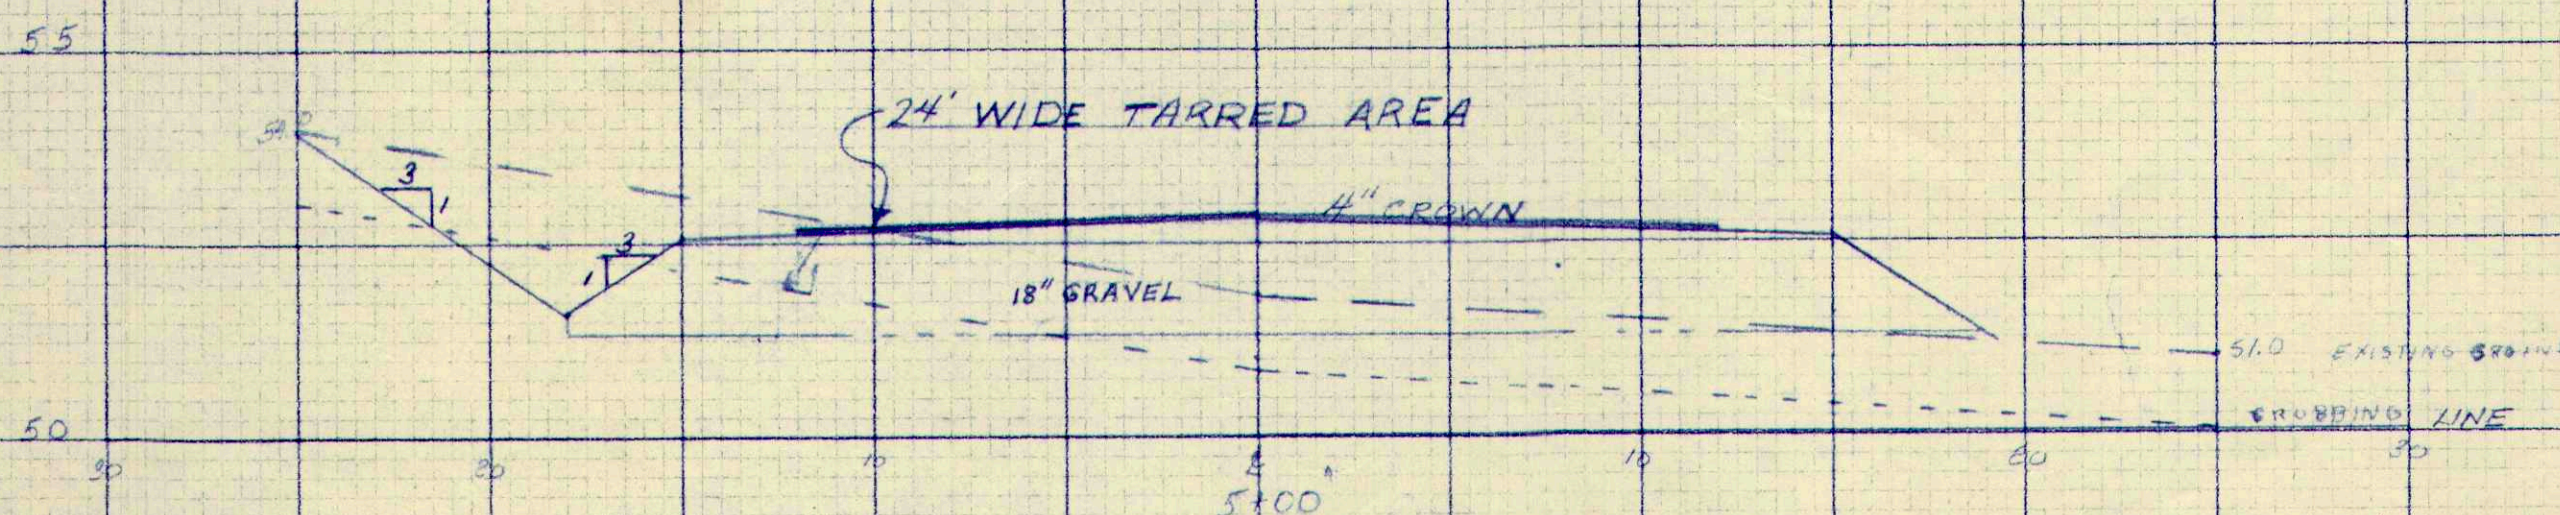 55
24' WIDE TARRED AREA
3
1
4" CROWN
3
1
18" GRAVEL
51.0 EXISTING GROUN
GRUBBING LINE
50
30 20 10 10 20 30
5+00